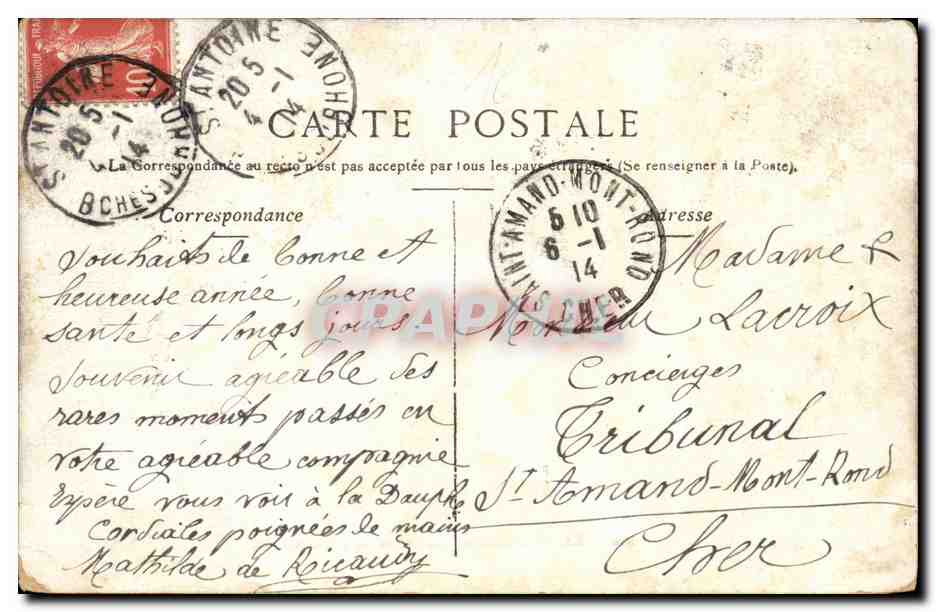 ST ANTOINE
20 5
4 -1
14
BCHES DU RHONE
ST ANTOINE
20 5
-1
14
BCHES DU RHONE
10
CARTE POSTALE
La Correspondance au recto n'est pas acceptée par tous les pays étrangers (Se renseigner à la Poste).
SAINT-AMAND-MONT-ROND
5 10
6 -1
14
CHER
Correspondance
Adresse
Souhaits de bonne et
heureuse année, bonne
santé et longs jours.
Souvenir agréable des
rares moments passés en
votre agréable compagnie
Espère vous voir à la Dauph
Cordiales poignées de mains
Mathilde de Ricaudy
Madame &
Monsieur Lacroix
Concierges
Tribunal
St Amand-Mont-Rond
Cher
CPAPHIL